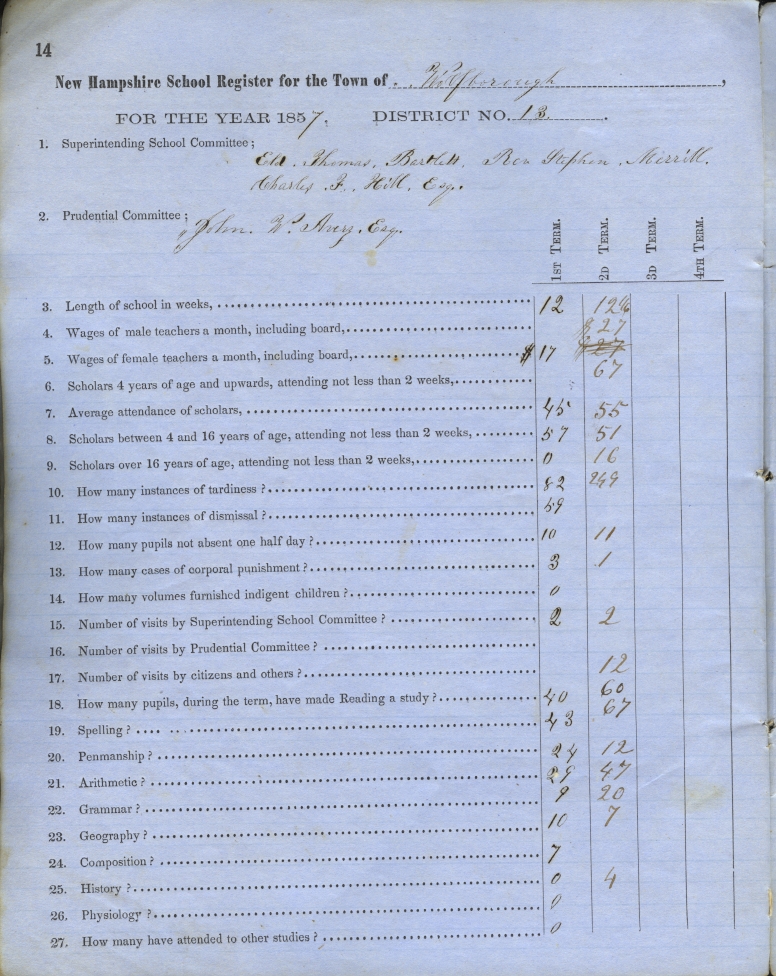 14
New Hampshire School Register for the Town of Wolfborough,
FOR THE YEAR 1857, DISTRICT NO. 13.
1. Superintending School Committee;
Eld. Thomas. Bartlett, Rev Stephen. Merrill.
Charles F. Hill, Esq.
2. Prudential Committee;
John. W. Avery. Esq.
1ST TERM. 2D TERM. 3D TERM. 4TH TERM.
3. Length of school in weeks, 12
4. Wages of male teachers a month, including board, $27
5. Wages of female teachers a month, including board, $17 $27
6. Scholars 4 years of age and upwards, attending not less than 2 weeks, 67
7. Average attendance of scholars, 45 55
8. Scholars between 4 and 16 years of age, attending not less than 2 weeks, 57 51
9. Scholars over 16 years of age, attending not less than 2 weeks, 0 16
10. How many instances of tardiness? 82
11. How many instances of dismissal? 59
12. How many pupils not absent one half day? 10 11
13. How many cases of corporal punishment? 3 1
14. How many volumes furnished indigent children? 0
15. Number of visits by Superintending School Committee? 2 2
16. Number of visits by Prudential Committee?
17. Number of visits by citizens and others? 12
18. How many pupils, during the term, have made Reading a study? 40 60
19. Spelling? 43 67
20. Penmanship? 24 12
21. Arithmetic? 29 47
22. Grammar? 9 20
23. Geography? 10 7
24. Composition? 7
25. History? 0 4
26. Physiology? 0
27. How many have attended to other studies? 0